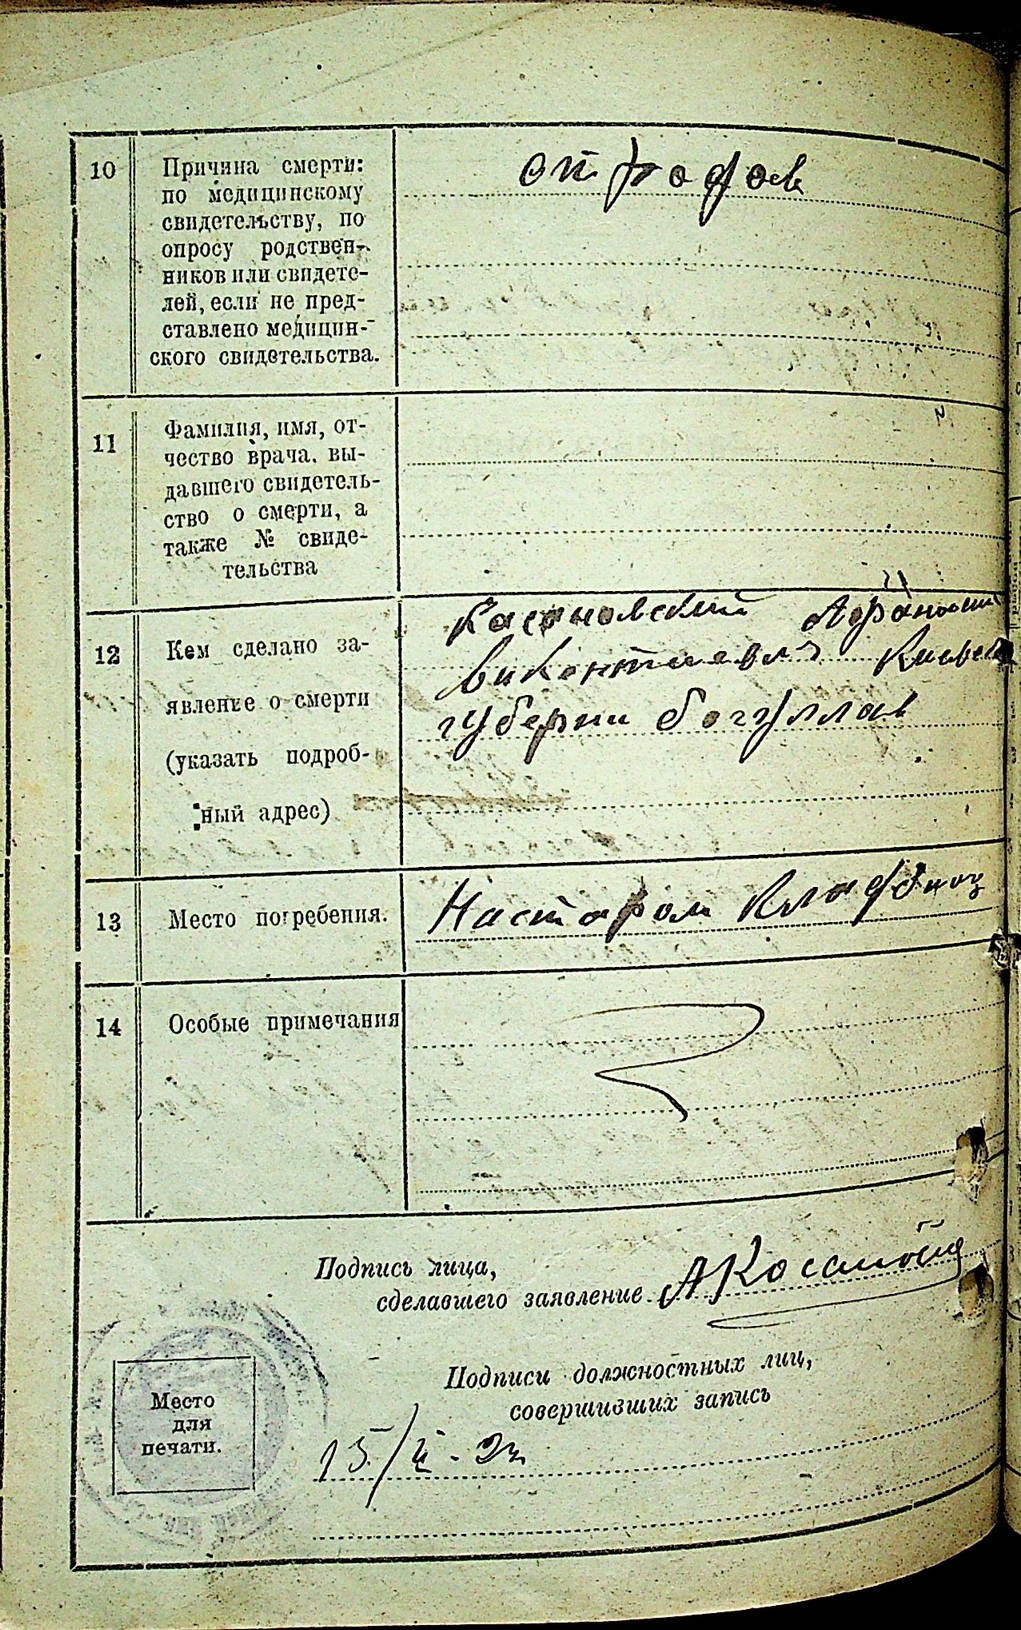 10
Причина смерти:
по медицинскому
свидетельству, по
опросу родствен-
ников или свидете-
лей, если не пред-
ставлено медицин-
ского свидетельства.
11
Фамилия, имя, от-
чество врача, вы-
давшего свидетель-
ство о смерти, а
также № свиде-
тельства
12
Кем сделано за-
явление о смерти
(указать подроб-
ный адрес)
губерни
13
Место погребения.
На старом
14
Особые примечания
Подпись лица,
сделавшего заявление
Подписи должностных лиц,
совершивших запись
Место
для
печати.
15/II